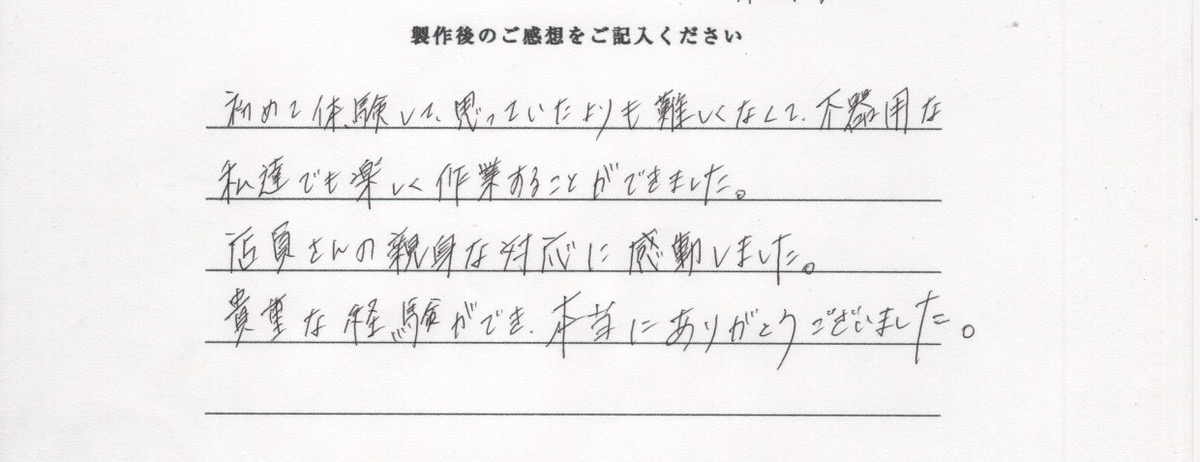 製作後のご感想をご記入ください
初めて体験して、思っていたよりも難しくなくて、不器用な
私達でも楽しく作業することができました。
店員さんの親身な対応に感動しました。
貴重な経験ができ、本当にありがとうございました。